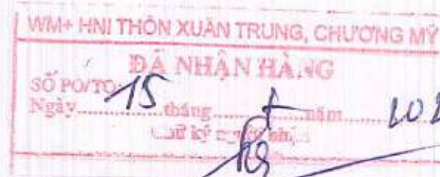 WM+ HNI THÔN XUÂN TRUNG, CHƯƠNG MỸ
ĐÃ NHẬN HÀNG
SỐ PO/TO:
Ngày 15 tháng năm 202
Chữ ký người nhận